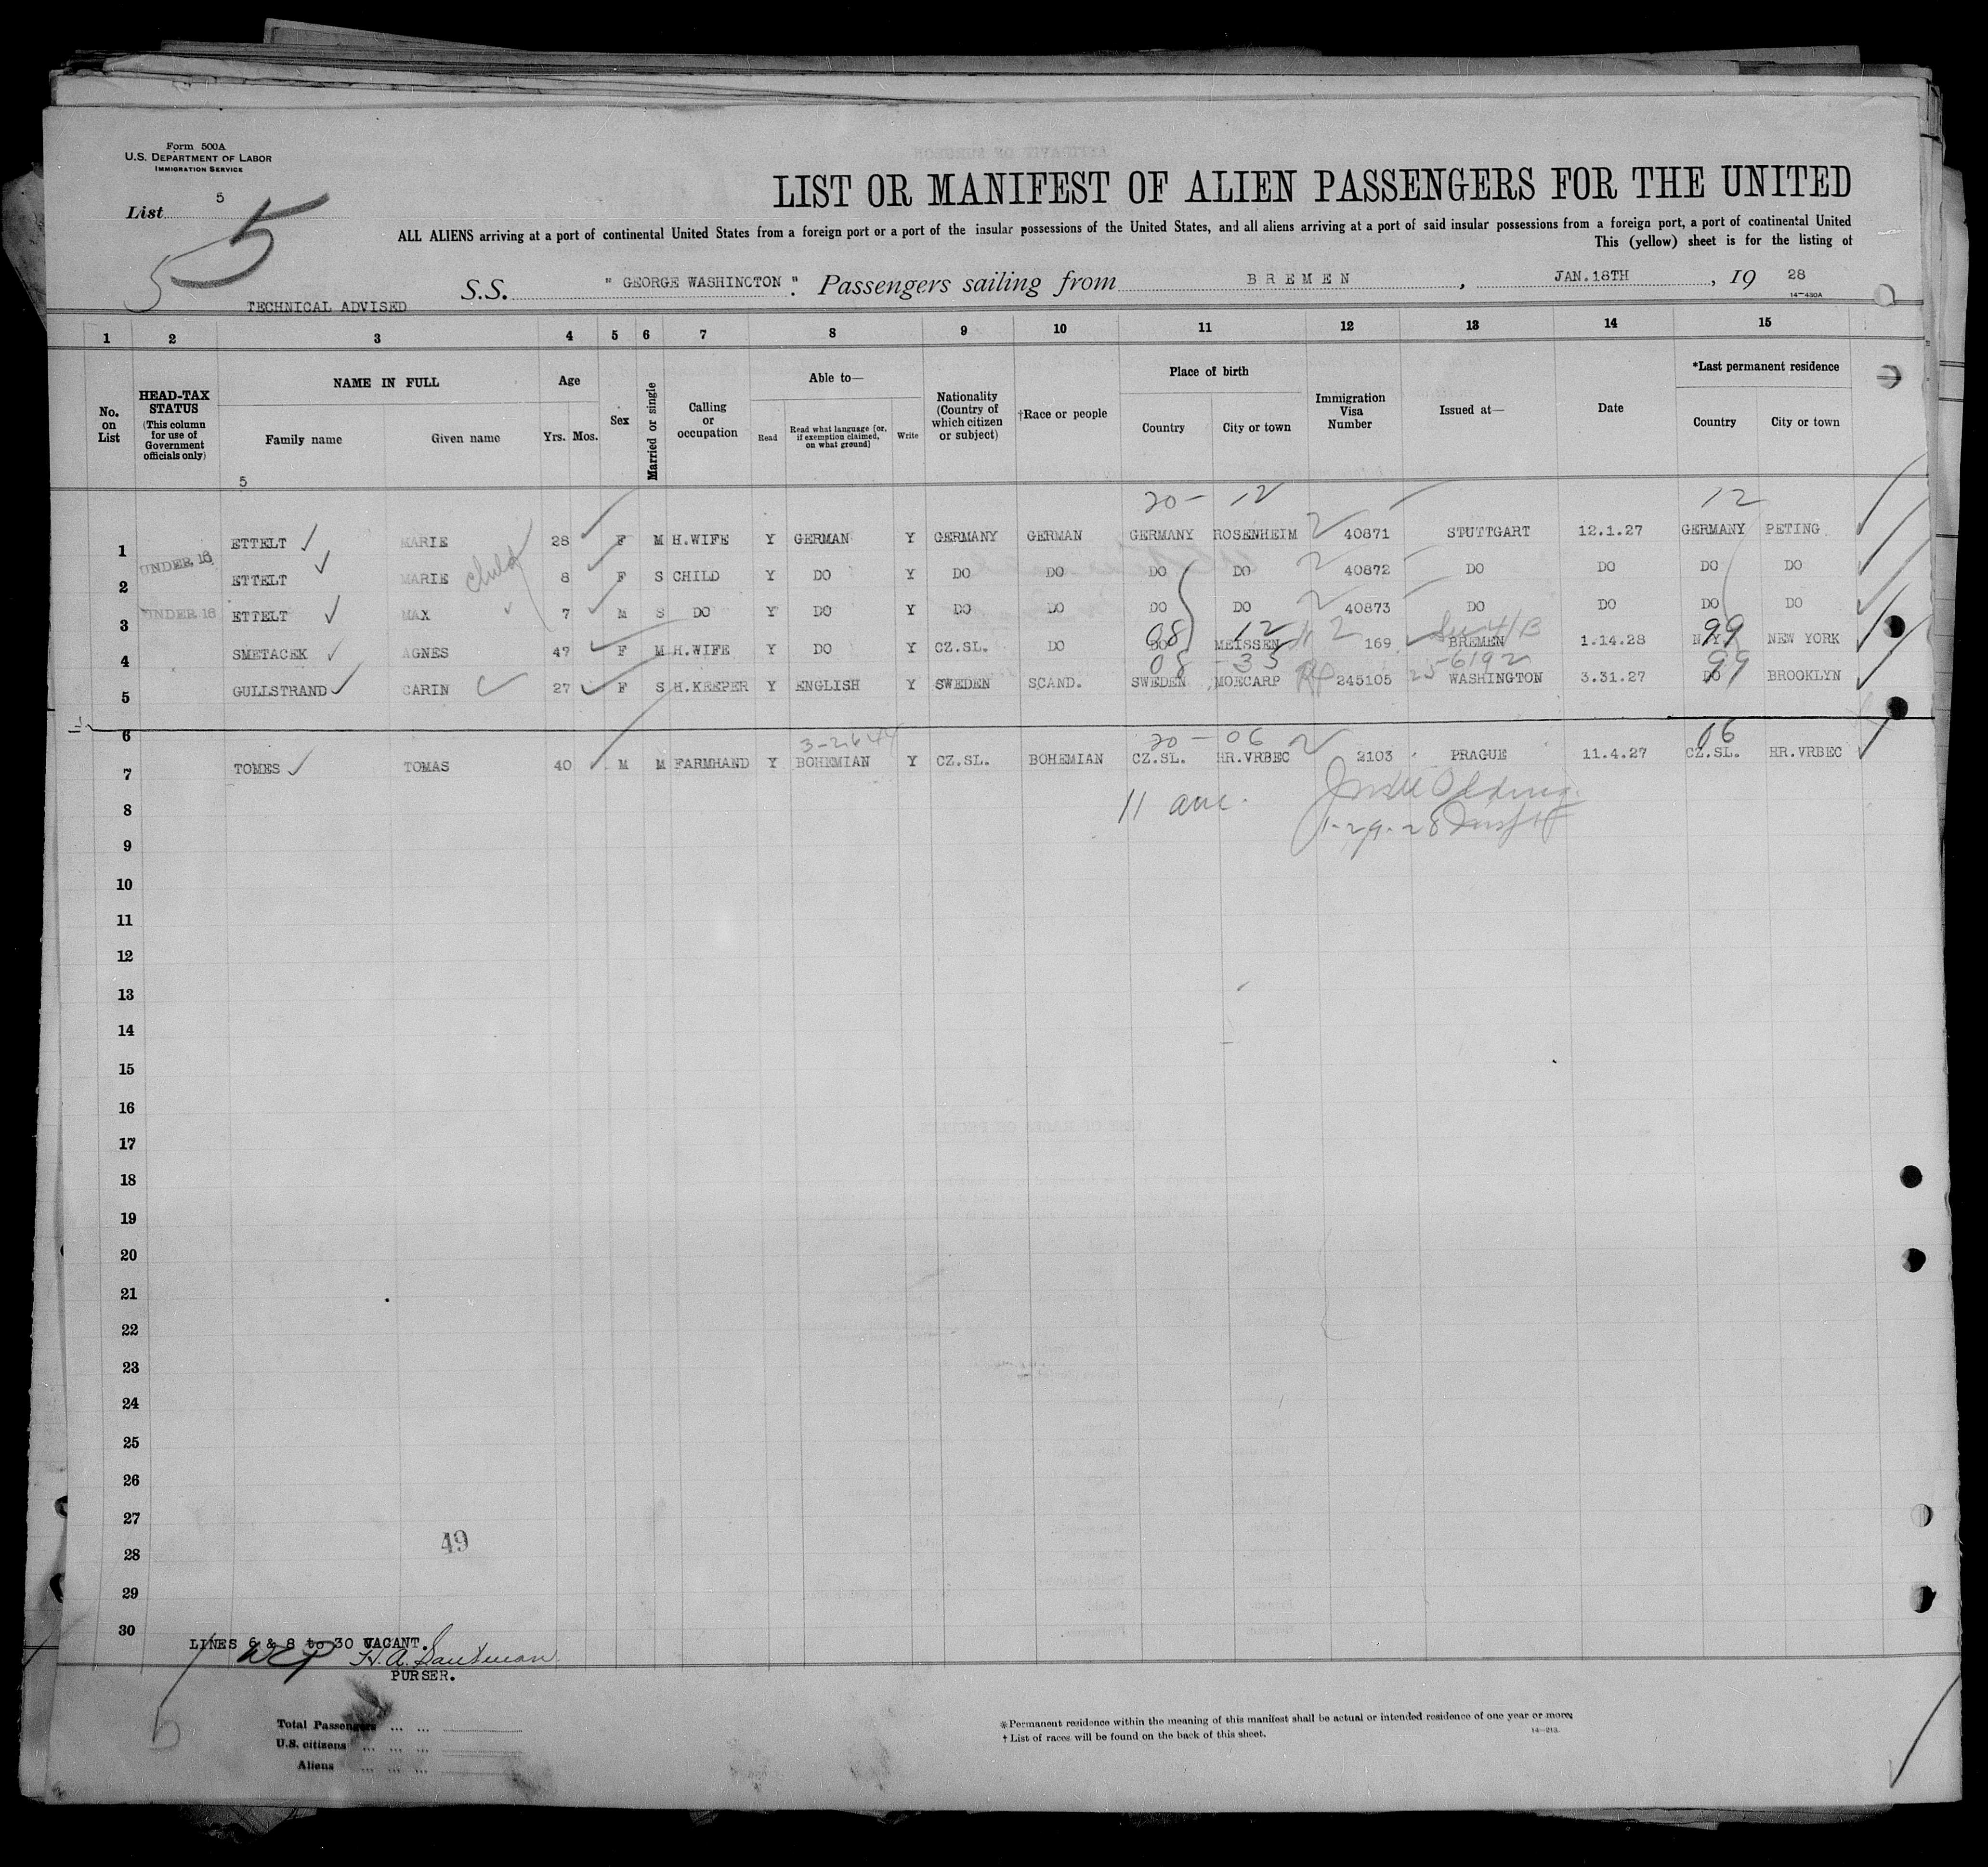 Form 500A
U.S. DEPARTMENT OF LABOR
IMMIGRATION SERVICE
List 5
5
5
LIST OR MANIFEST OF ALIEN PASSENGERS FOR THE UNITED
ALL ALIENS arriving at a port of continental United States from a foreign port or a port of the insular possessions of the United States, and all aliens arriving at a port of said insular possessions from a foreign port, a port of continental United
This (yellow) sheet is for the listing of
S.S. "GEORGE WASHINGTON". Passengers sailing from BREMEN, JAN.18TH, 19 28
14—430A
TECHNICAL ADVISED
1 2 3 4 5 6 7 8 9 10 11 12 13 14 15
No. on List
HEAD-TAX STATUS (This column for use of Government officials only)
NAME IN FULL
Family name Given name
Age
Yrs. Mos.
Sex
Married or single
Calling or occupation
Able to—
Read
Read what language [or, if exemption claimed, on what ground]
Write
Nationality (Country of which citizen or subject)
†Race or people
Place of birth
Country City or town
Immigration Visa Number
Issued at—
Date
*Last permanent residence
Country City or town
5
20 - 12 12
1 ETTELT MARIE 28 F M H.WIFE Y GERMAN Y GERMANY GERMAN GERMANY ROSENHEIM 40871 STUTTGART 12.1.27 GERMANY PETING
2 UNDER 16 ETTELT MARIE child 8 F S CHILD Y DO Y DO DO DO DO 40872 DO DO DO DO
3 UNDER 16 ETTELT MAX 7 M S DO Y DO Y DO DO DO DO 40873 DO DO DO DO
08 12 99
4 SMETACEK AGNES 47 F M H.WIFE Y DO Y CZ.SL. DO DO MEISSEN 169 BREMEN 1.14.28 N.Y. NEW YORK
08 - 35 99
5 GULLSTRAND CARIN 27 F S H.KEEPER Y ENGLISH Y SWEDEN SCAND. SWEDEN MOECARP 245105 WASHINGTON 3.31.27 DO BROOKLYN
6
20 - 06 06
7 TOMES TOMAS 40 M M FARMHAND Y BOHEMIAN Y CZ.SL. BOHEMIAN CZ.SL. HR.VRBEC 2103 PRAGUE 11.4.27 CZ.SL. HR.VRBEC
8
9
10
11
12
13
14
15
16
17
18
19
20
21
22
23
24
25
26
27
49
28
29
30
LINES 6 & 8 to 30 VACANT.
PURSER.
Total Passengers
U.S. citizens
Aliens
*Permanent residence within the meaning of this manifest shall be actual or intended residence of one year or more.
†List of races will be found on the back of this sheet.
14—213